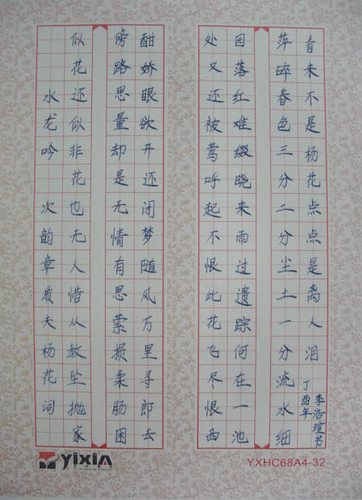 水龙吟 次韵章质夫杨花词
似花还似非花也无人惜从教坠抛家
傍路思量却是无情有思萦损柔肠困
酣娇眼欲开还闭梦随风万里寻郎去
处又还被莺呼起不恨此花飞尽恨西
园落红难缀晓来雨过遗踪何在一池
萍碎春色三分二分尘土一分流水细
看来不是杨花点点是离人泪
丁酉年
李浩瑄书
YIXIN
YXHC68A4-32